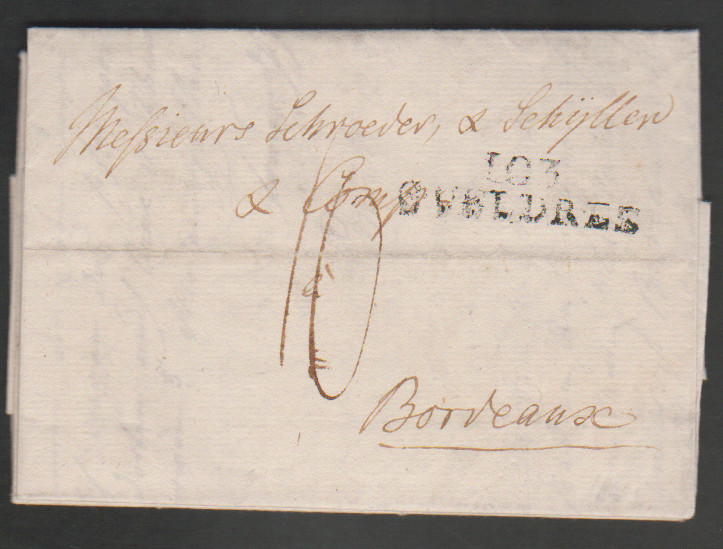 Messieurs Schroeder, & Schÿller
& Comp
103
GUELDRES
10
à
Bordeaux